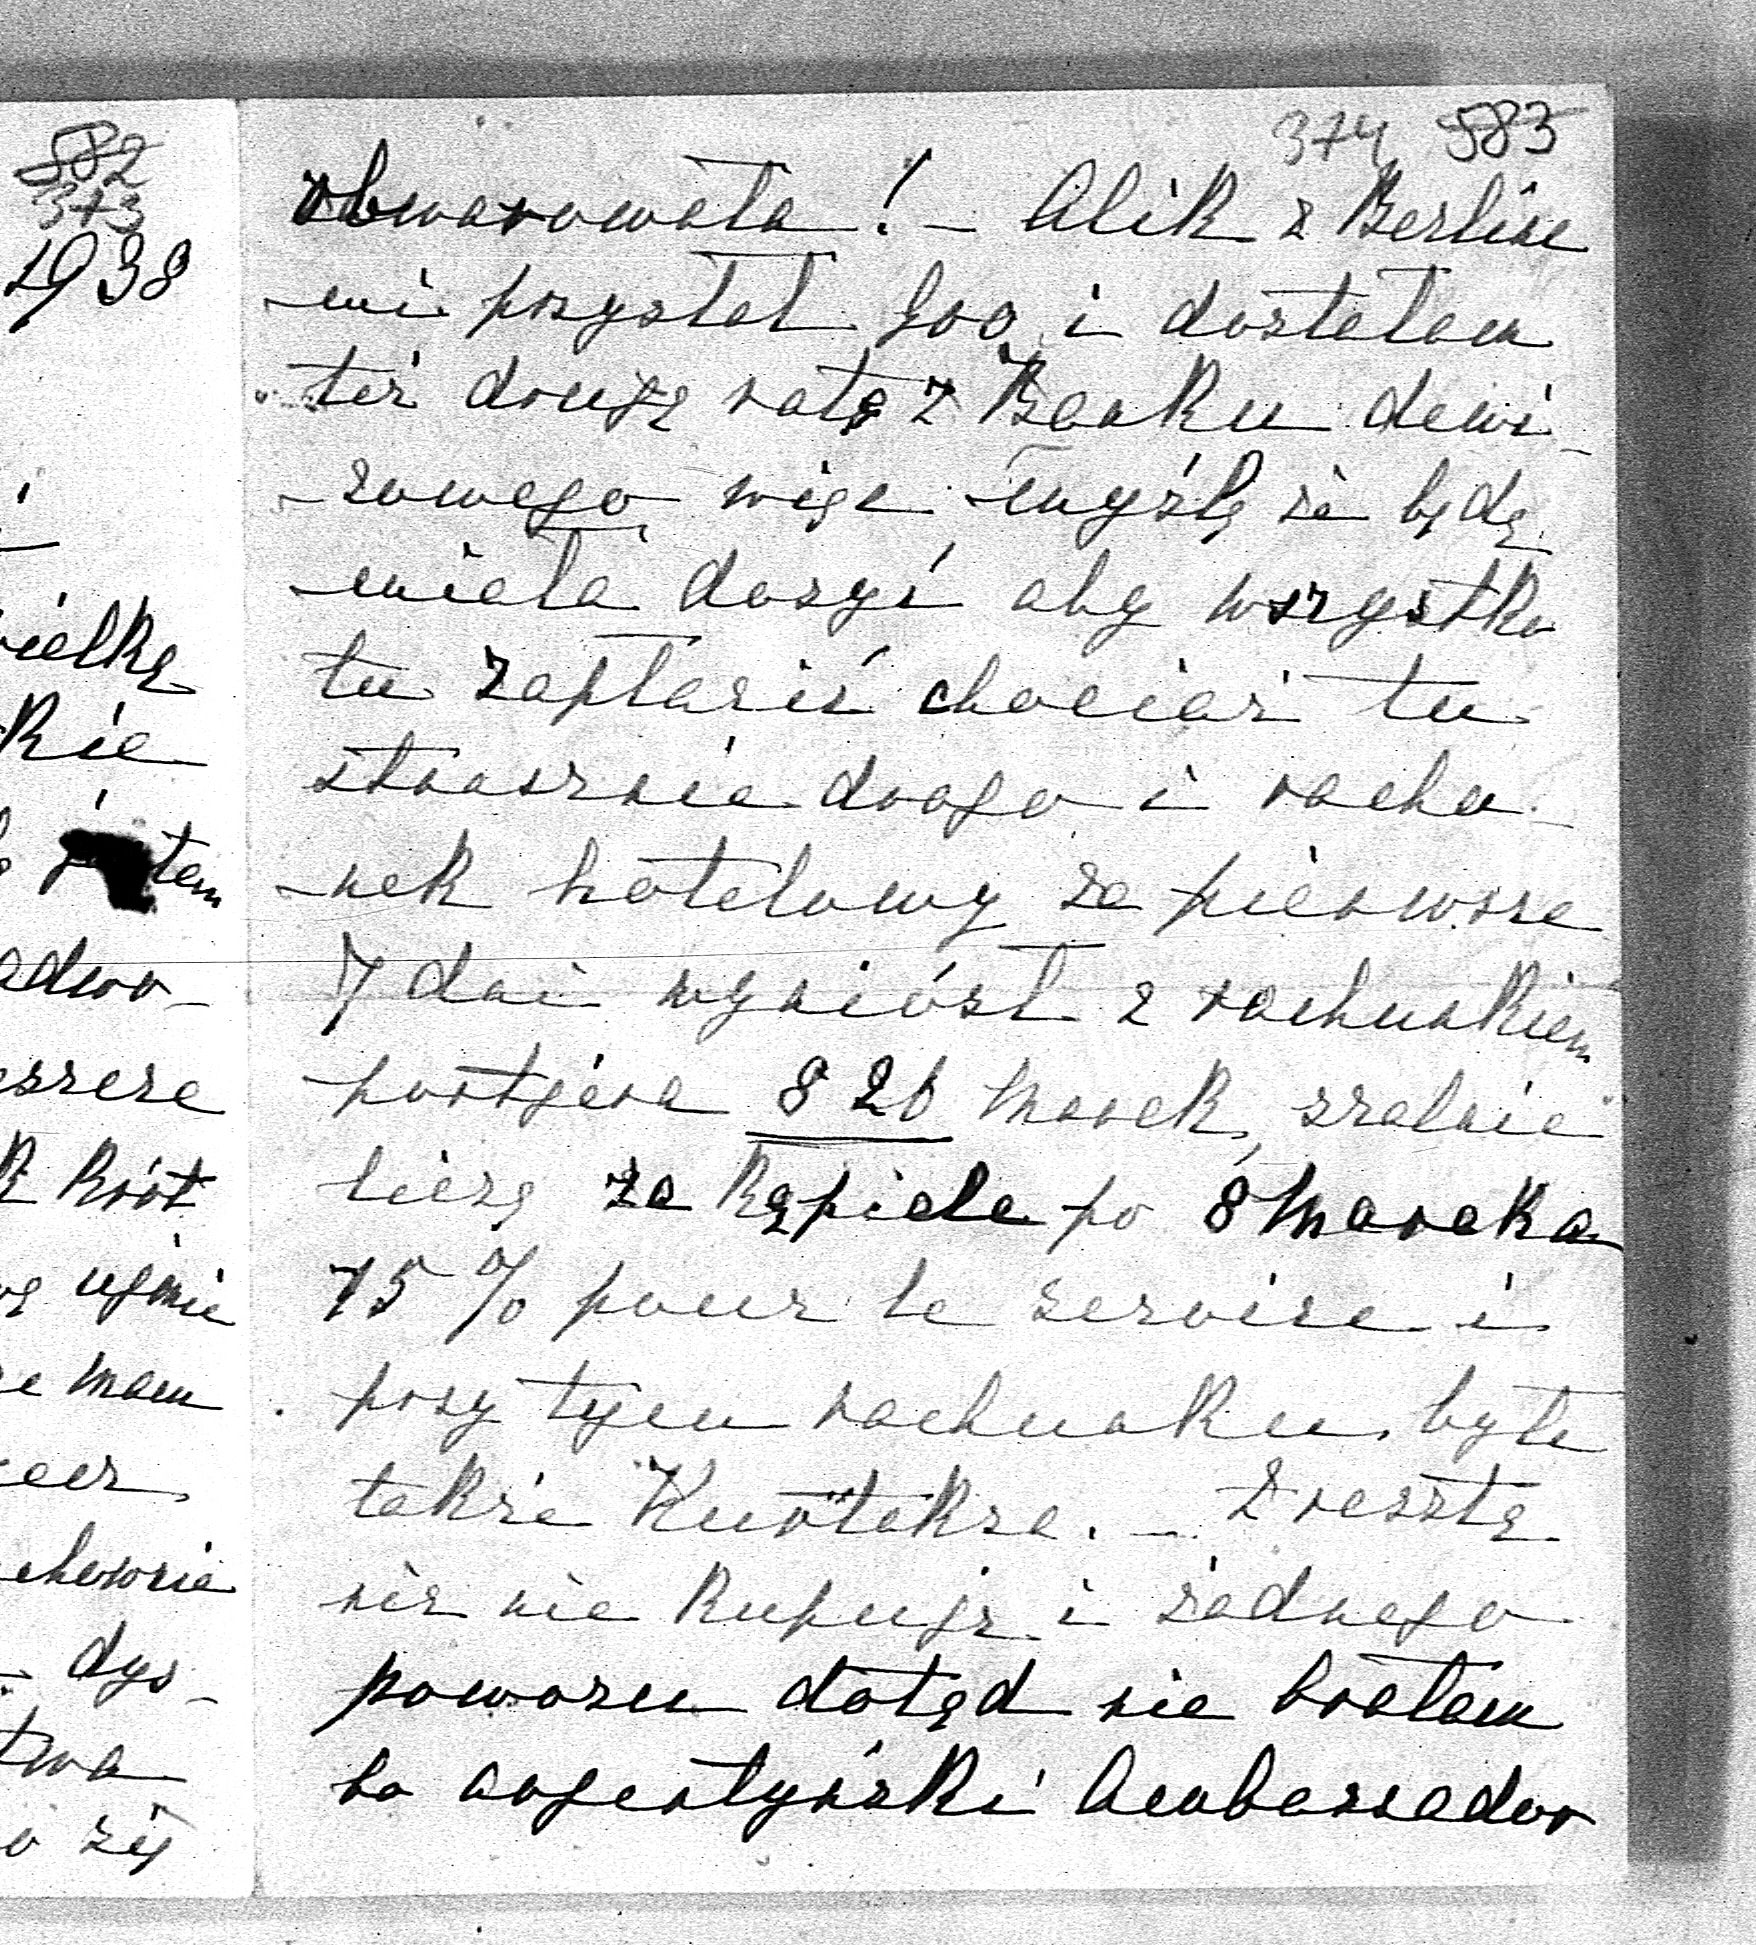 582
373
1938
ielkę
kie
tem
adwo-
k król
ugnie
mam
dys-
twa
się
374 583
obwarowała! - Alik z Berlina
mi przysłał 800 i dostałam
też drugą ratę z Banku dewi-
-zowego więc myślę że będę
miała dosyć aby wszystko
tu zapłacić chociaż tu
strasznie drogo i rachu-
-nek hotelowy za pierwsze
7 dni wyniósł z rachunkiem
portjera 826 Marek, szalnie
liczą za kąpiele po 8 Marek a
15 % pour le service i
przy tym rachunku była
także Kurtaksa. - Zresztą
nic nie kupuję i żadnego
powozu dotąd nie brałam
bo argentyński Ambassador